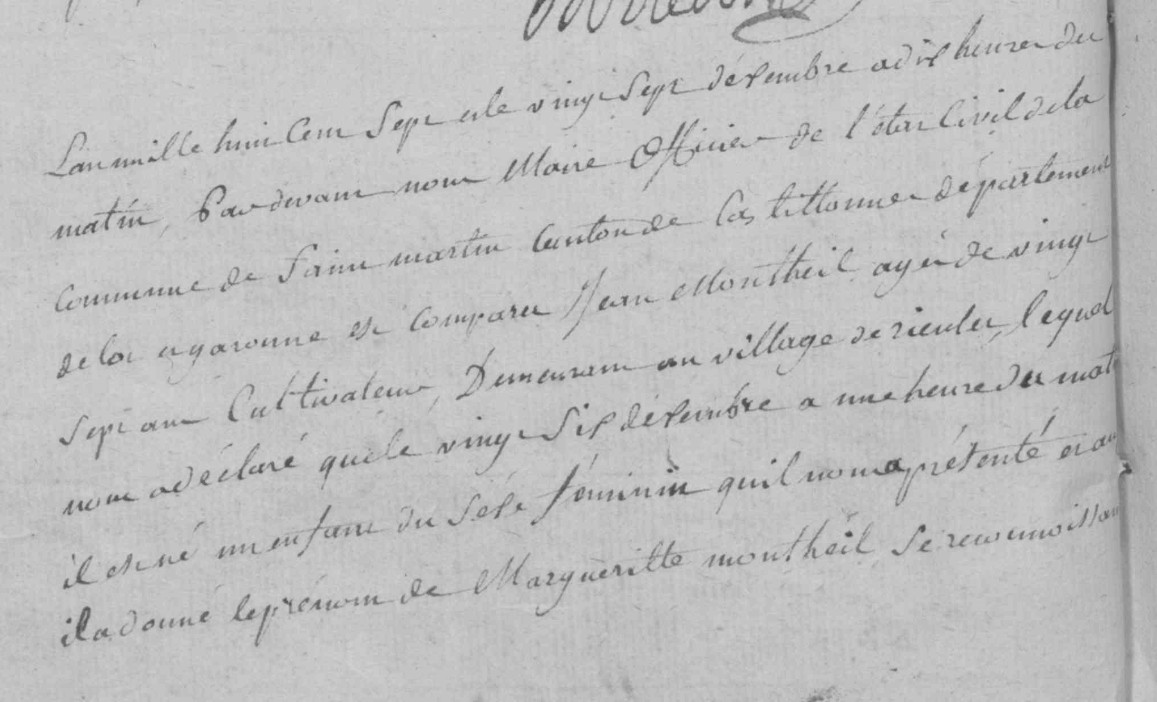 L'an mille huit Cent Sept et le vingt Sept désembre a dis heures du
matin, Par devant nous Maire Officier de l'état Civil de la
Commune de Saint martin Canton de Castillonnes département
de lot et garonne est Comparu Jean Montheil agé de vingt
Sept ans Cultivateur, Demeurant au village de lequel
nous a déclaré que le vingt Sis désembre a une heure du mat
il est né un enfant du Sèse féminin qu'il nous a présenté et au
il a donné le prénom de Margueritte montheil Se reconnoissan